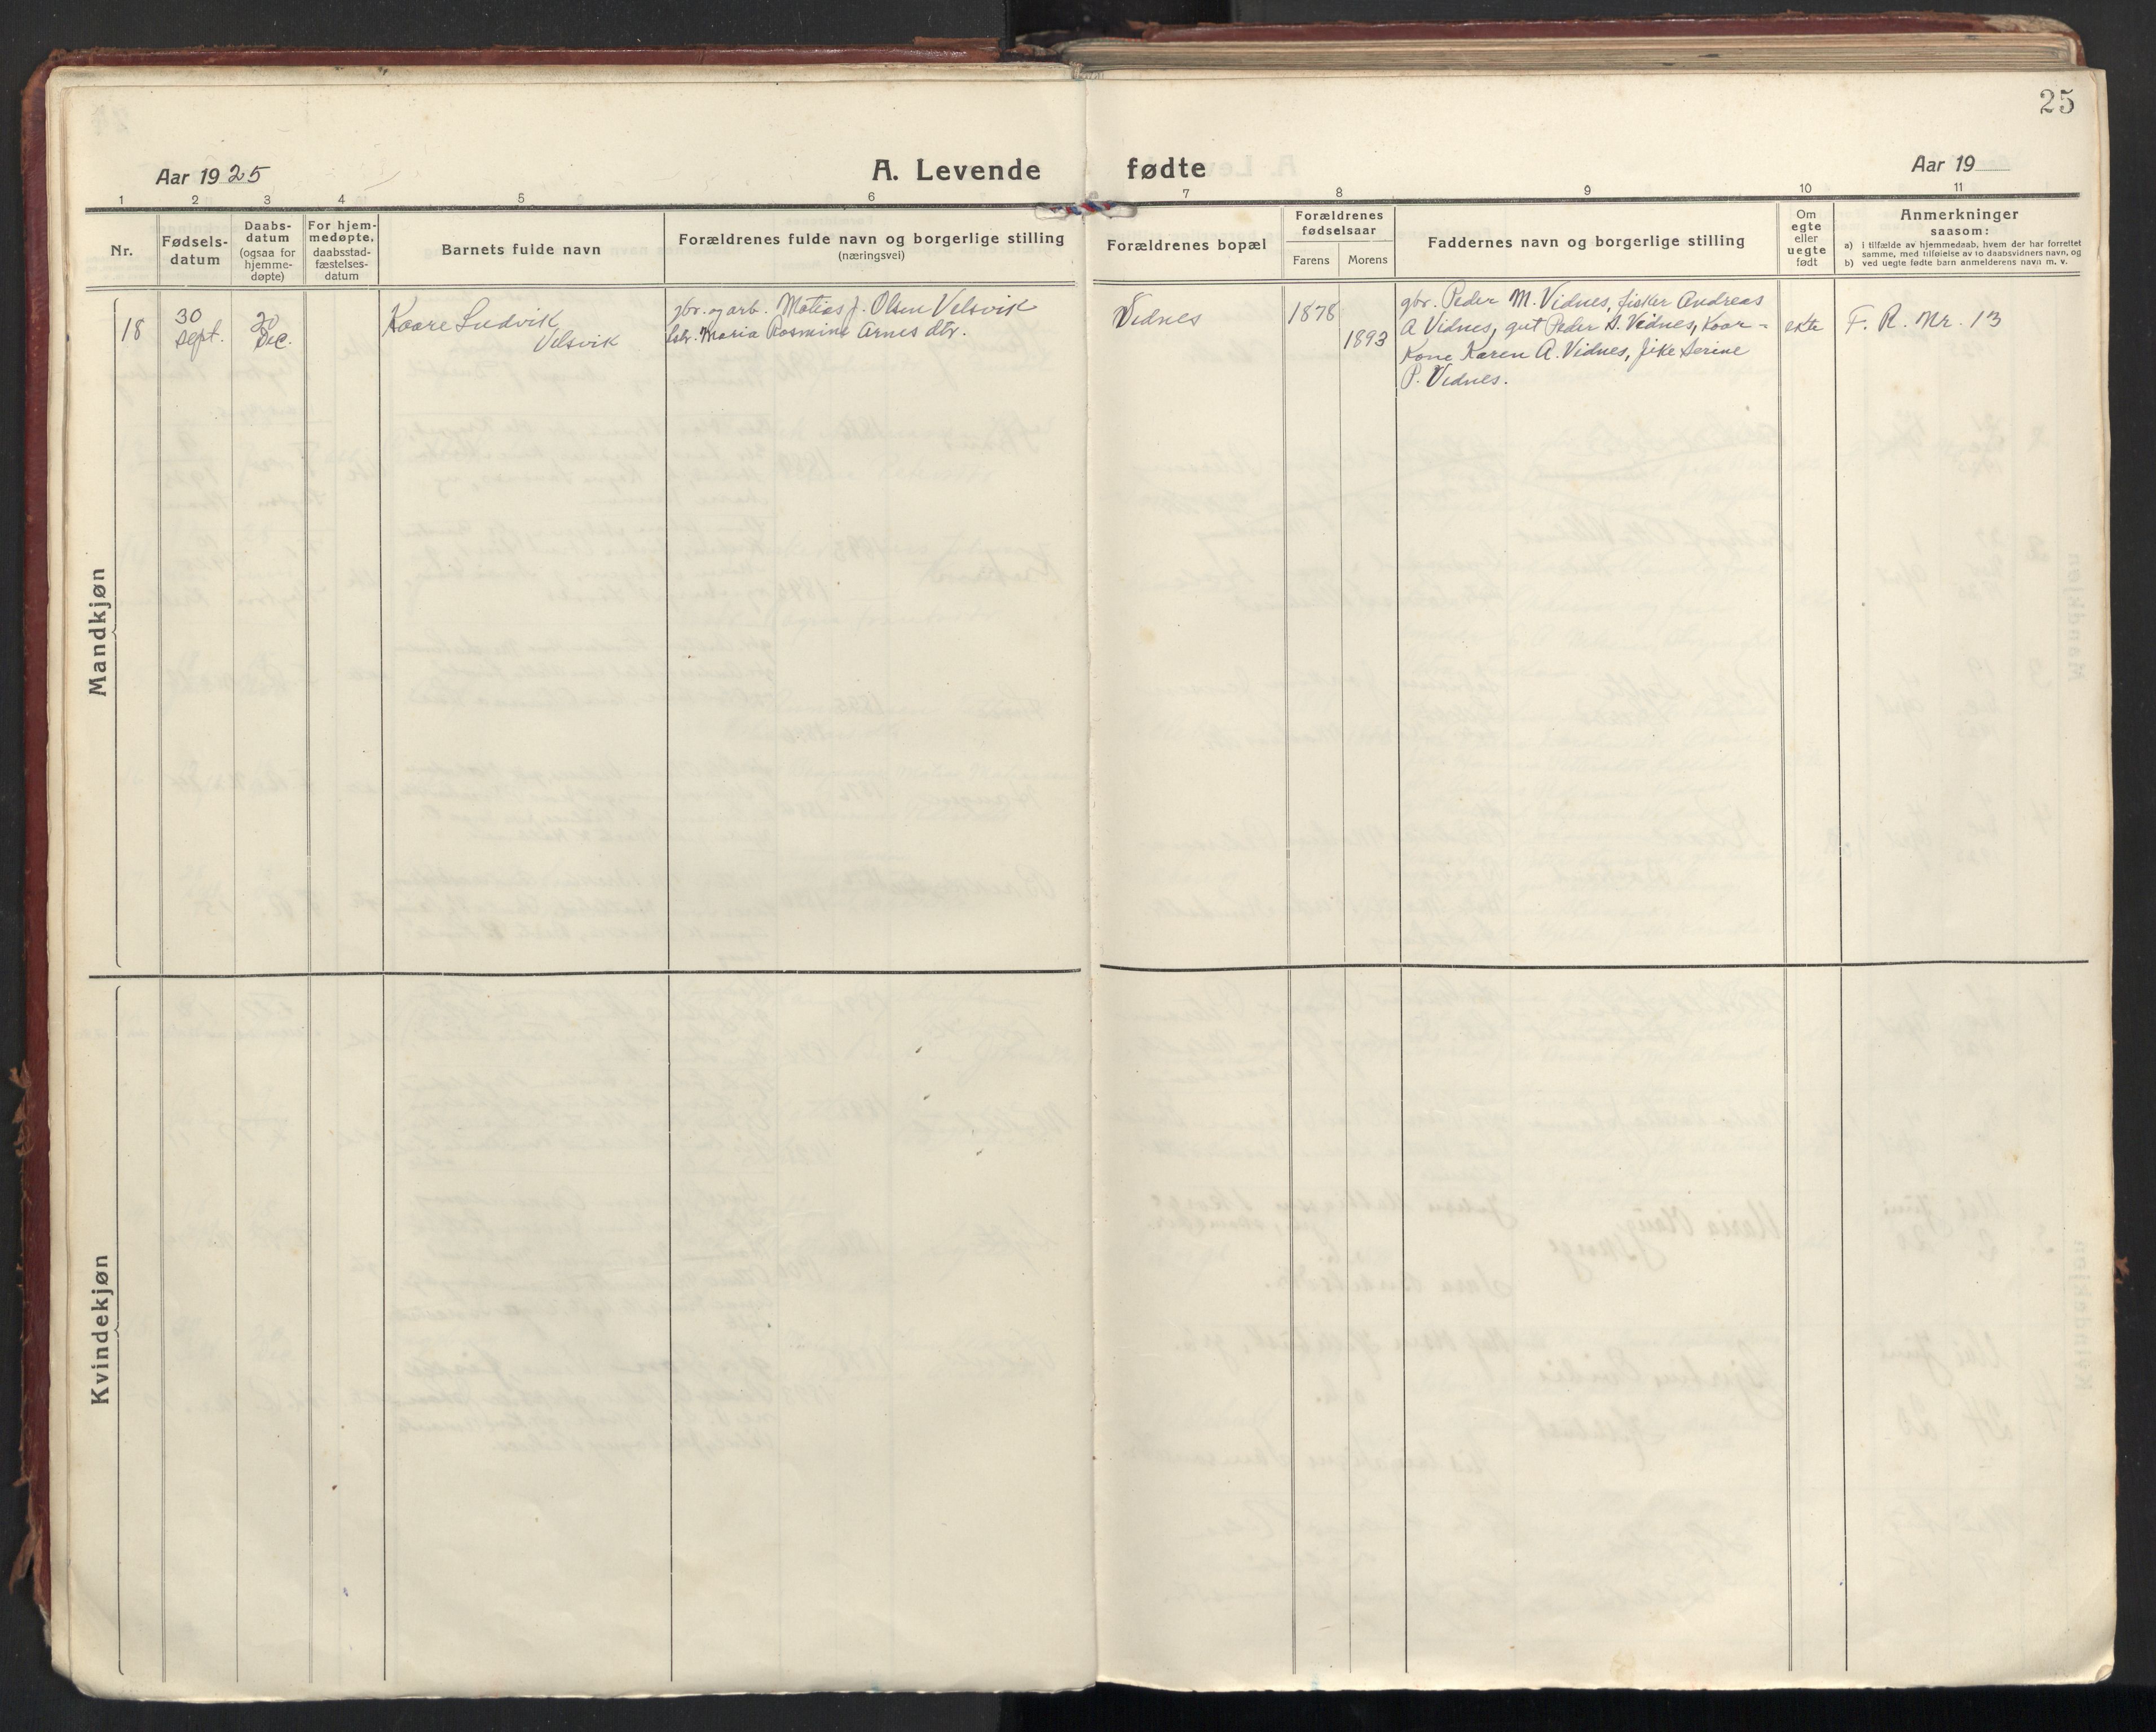 25
Aar 1925
A. Levende
fødte
Aar 19
1 2 3 4 5 6 7 8 9 10 11
Nr.
Fødsels-
datum
Daabs-
datum
(ogsaa for
hjemme-
døpte)
For hjem-
medøpte,
daabsstad-
fæstelses-
datum
Barnets fulde navn
Forældrenes fulde navn og borgerlige stilling
(næringsvei)
Forældrenes bopæl
Forældrenes
fødselsaar
Farens
Morens
Faddernes navn og borgerlige stilling
Om
egte
eller
uegte
født
Anmerkninger
saasom:
a) i tilfælde av hjemmedaab, hvem der har forrettet
samme, med tilføielse av to daabsvidners navn, og
b) ved uegte fødte barn anmelderens navn m. v.
Mandkjøn
18
30
Sept.
20
Dec.
Kaare Ludvik
Velsvik
gbr. og arb. Matias J. Olsen Velsvik
Maria Rasmine Arnes dtr.
Vidnes
1878
1893
gbr. Peder M. Vidnes, fisker Andreas
A Vidnes, gut Peder A. Vidnes, Kaar-
Kone Karen A. Vidnes, pike Serine
P. Vidnes.
ekte
F. R. Nr. 13
Kvindekjøn